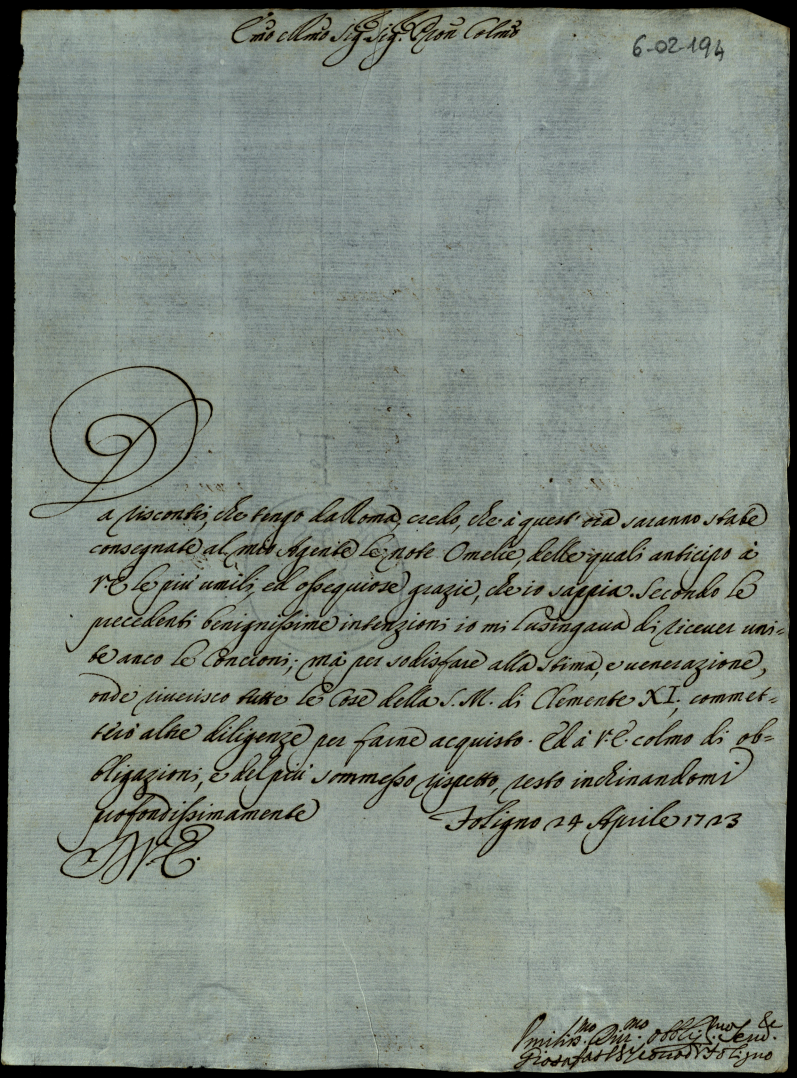 Emo e Rmo Sig. Sig. Pron Colmo
6-02-194
Da riscontri, che tengo da Roma, credo, che à quest' ora saranno state
consegnate al mio Agente le note Omelie, delle quali anticipo à
V.E. le più umili, ed ossequiose grazie, che io sappia. Secondo le
precedenti benignissime intenzioni io mi lusingava di ricever uni=
te anco le Concioni; mà per sodisfare alla stima, e venerazione,
onde riverisco tutte le cose della S. M. di Clemente XI, commet=
terò altre diligenze per farne acquisto. Ed à V.E. colmo di ob=
bligazioni, e del più sommesso rispetto, resto inchinandomi
profondissimamente Foligno 24 Aprile 1723
V.E.
Umilis.mo Div.mo Obblig.mo Serv.
Giosafat Vescovo di Foligno